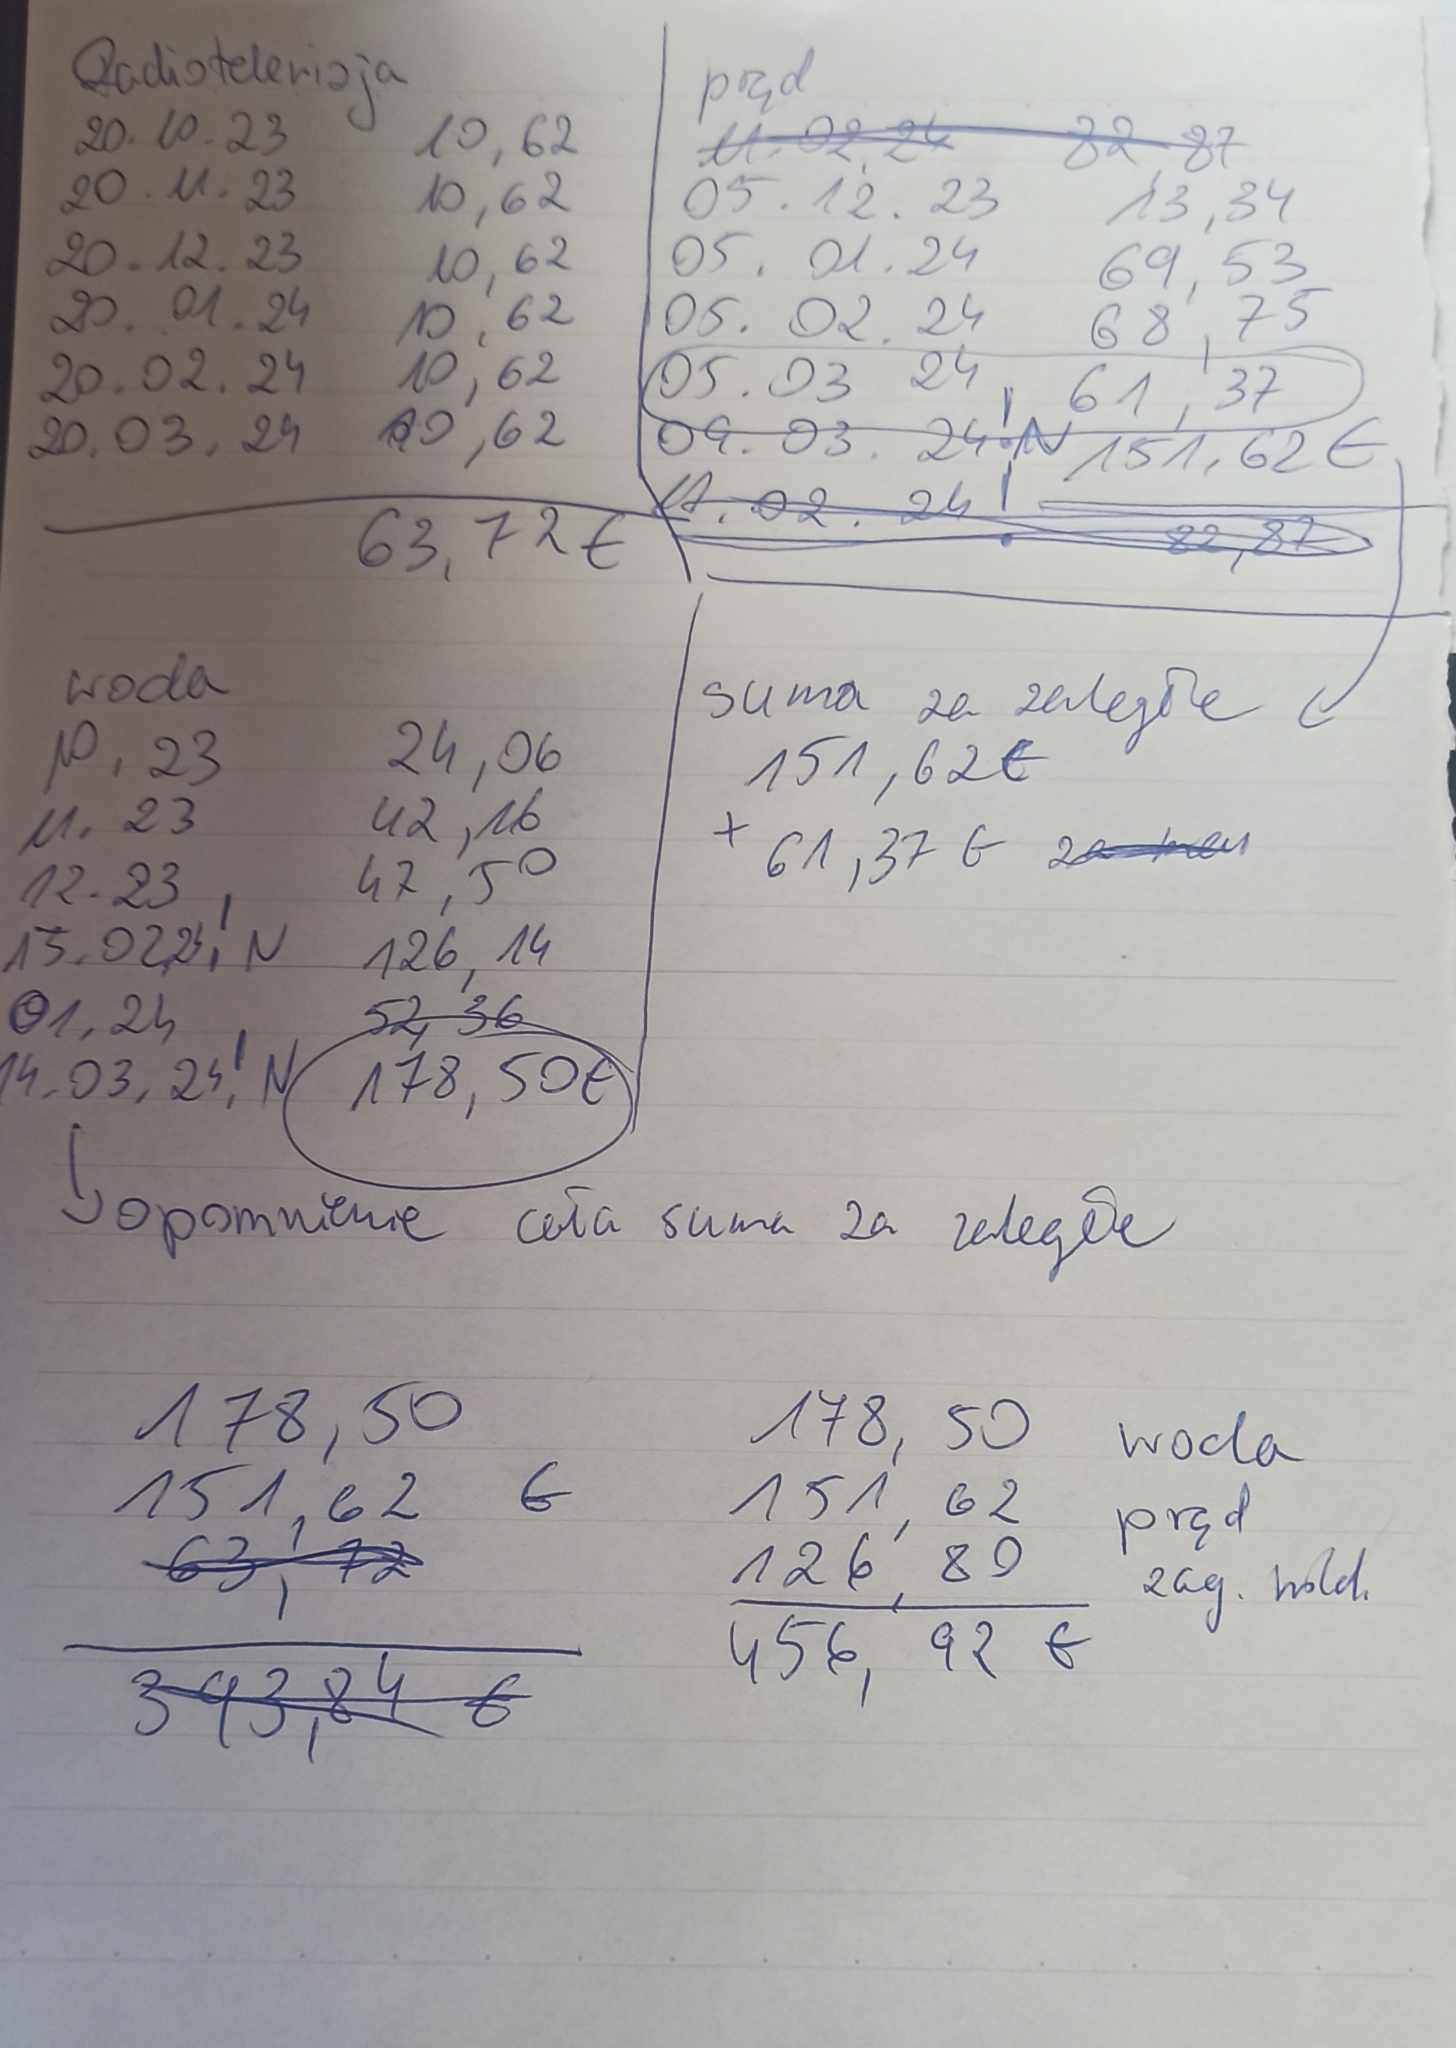 Radiotelewizja
20.10.23 10,62
20.11.23 10,62
20.12.23 10,62
20.01.24 10,62
20.02.24 10,62
20.03.24 10,62
63,72 €
prąd
11.02.24 82,87
05.12.23 13,34
05.01.24 69,53
05.02.24 68,75
05.03 24 61,37
09.03.24 ! N 151,62 €
11.02.24 ! 82,87
woda
10.23 24,06
11.23 42,16
12.23 47,50
15.02.24! N 126,14
01.24 52,36
14.03.24! N 178,50€
suma za zaległe
151,62€
+ 61,37 €
opomnienie cała suma za zaległe
178,50
151,62 €
63,72
393,84 €
178,50 woda
151,62 prąd
126,80 zag.
456,92 €